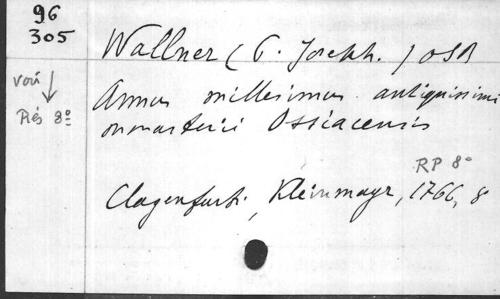 96
305
Wallner (P. Joseph.) OSB
voir
Rés 8º
Annus millesimus antiquissimi
monasterii Ossiacensis
RP 8º
Clagenfurti, Kleinmayr, 1766, 8